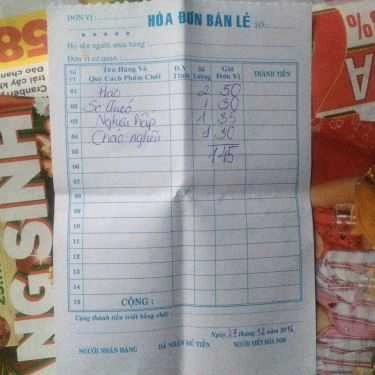 ĐƠN VỊ
HÓA ĐƠN BÁN LẺ
SỐ
Họ tên người mua hàng
Đơn vị cơ quan
Số TT Tên Hàng Và Quy Cách Phẩm Chất Đ.V Tính Số Lượng Giá Đơn Vị THÀNH TIỀN
01 Hào 2 50
02 Sò 1 30
03 Nghêu hấp 1 35
04 Cháo nghêu 1 30
05
06
07
08
09
10
11
12
13
14
15
CỘNG :
Cộng thành tiền (viết bằng chữ)
Ngày tháng 12 năm
NGƯỜI NHẬN HÀNG
ĐÃ NHẬN ĐỦ TIỀN
NGƯỜI VIẾT HÓA ĐƠN
58
Cranberry
NG SINH
%
A